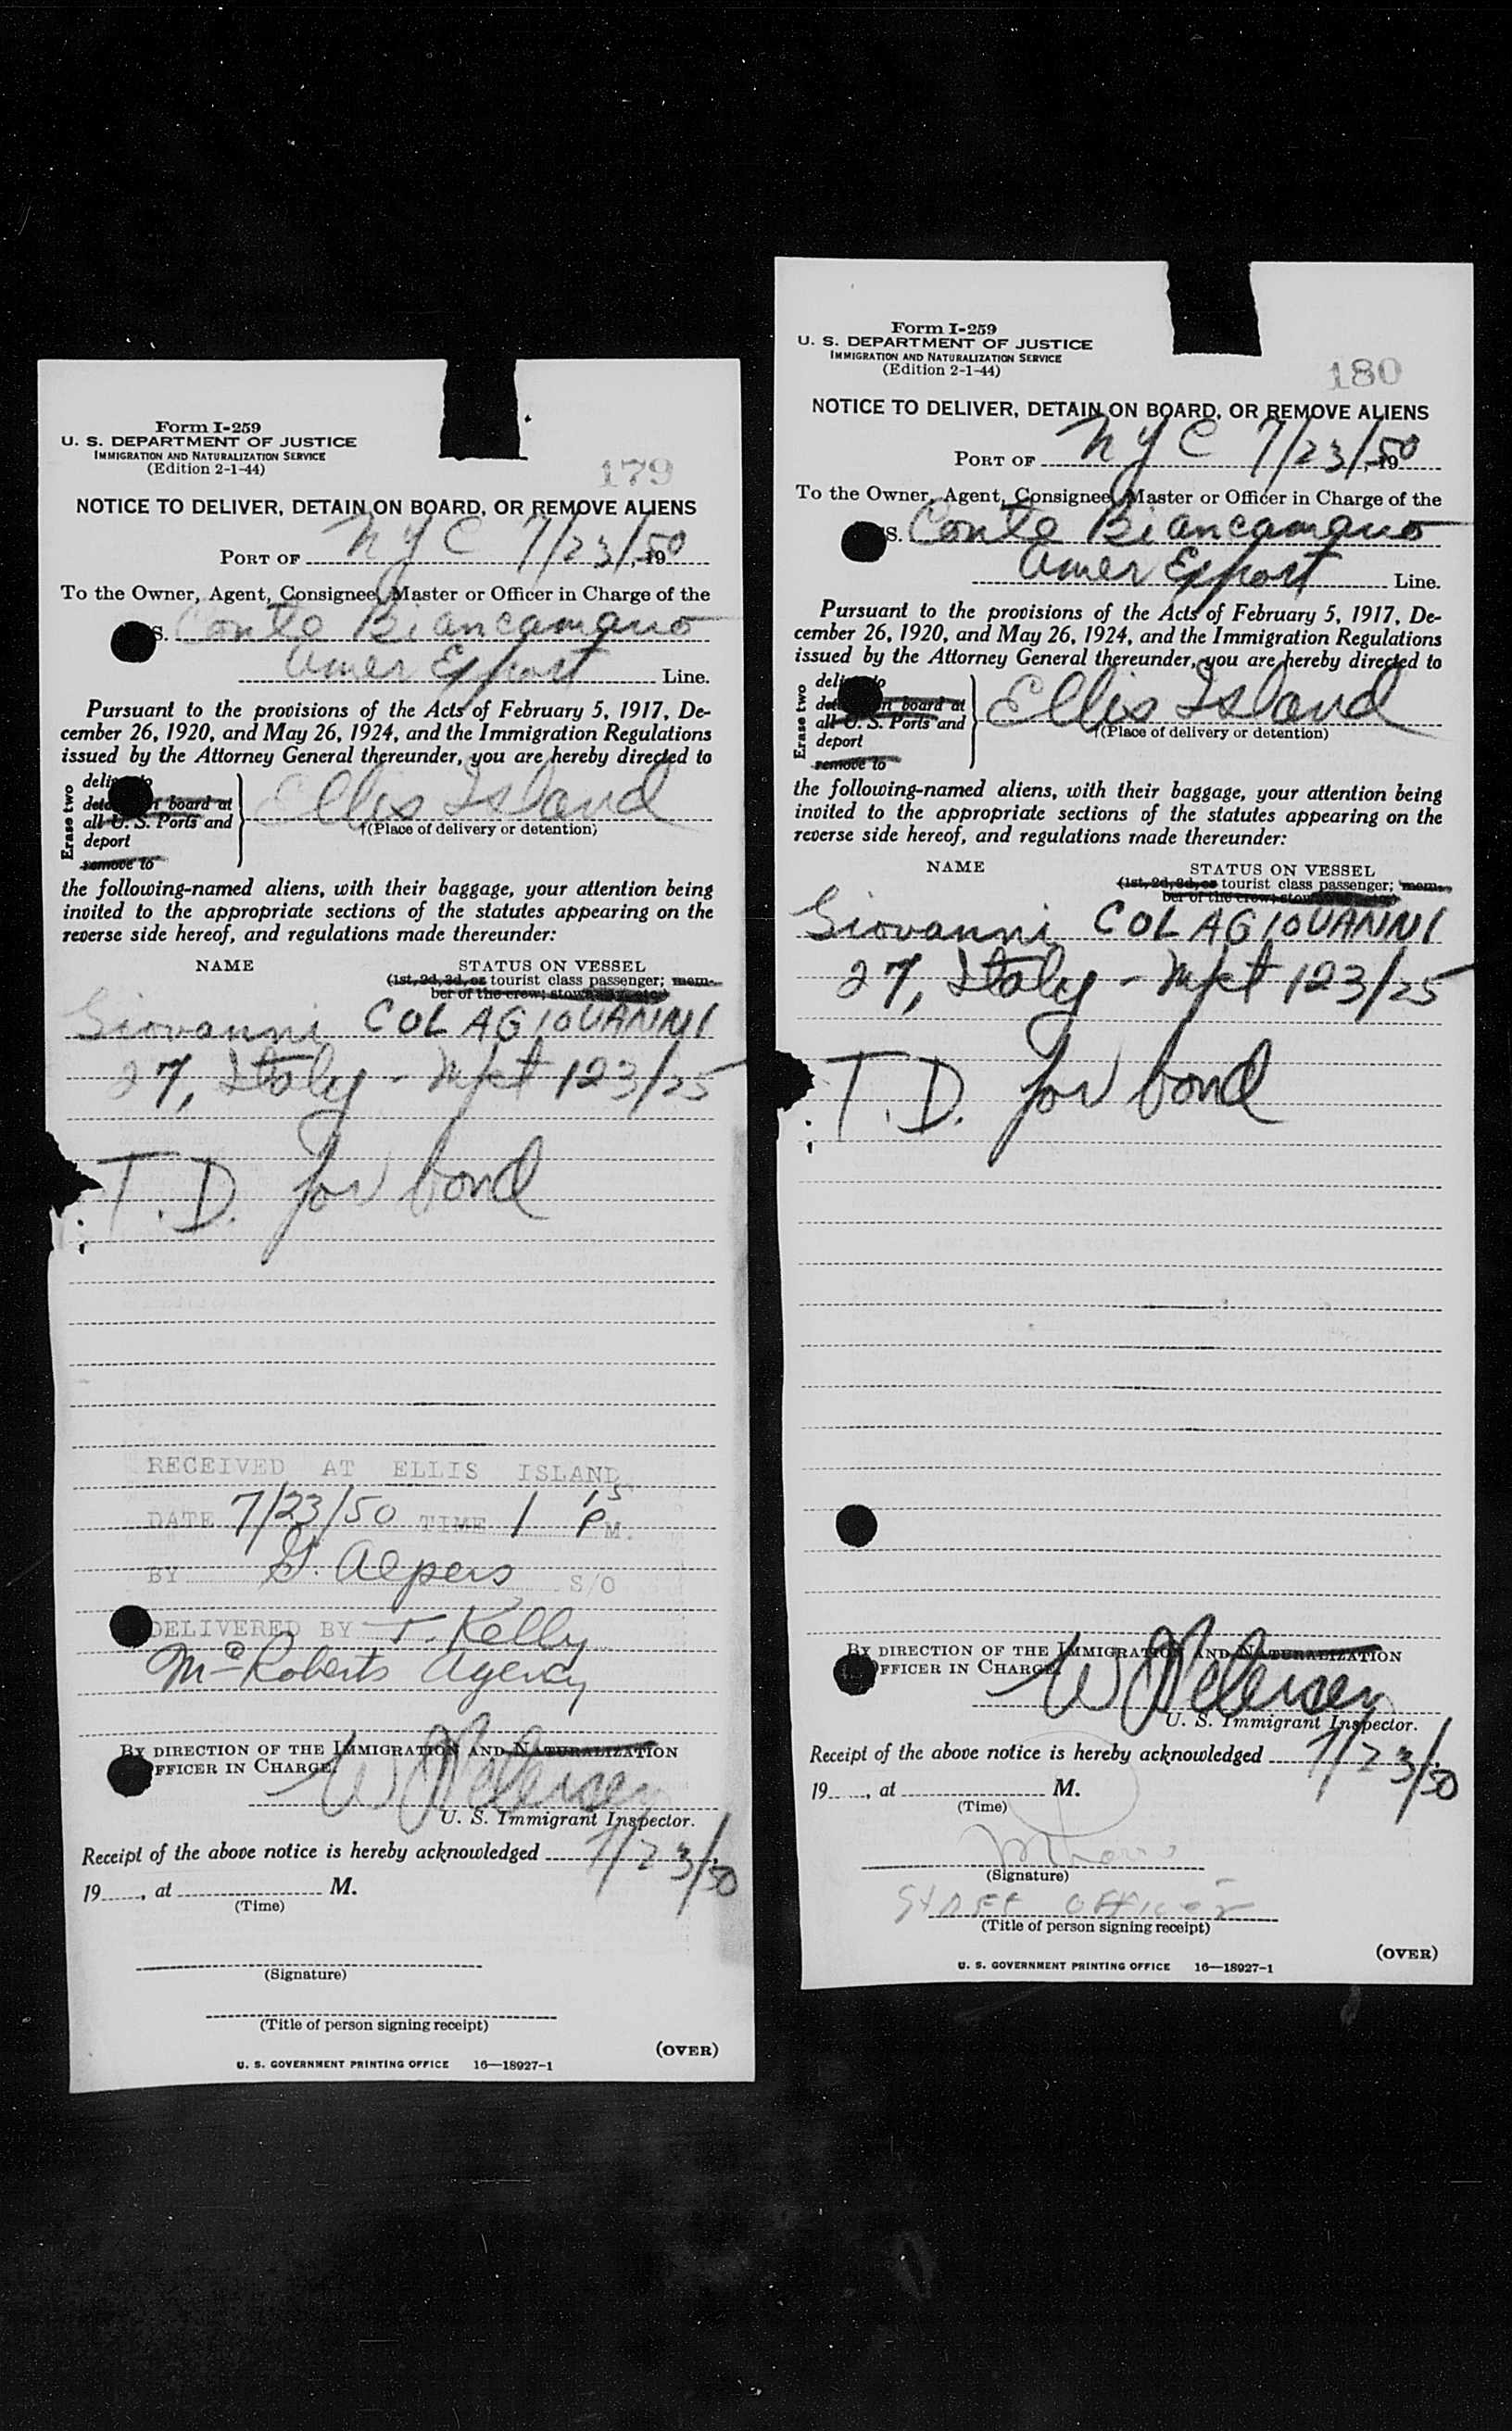 Form I-259
U. S. DEPARTMENT OF JUSTICE
IMMIGRATION AND NATURALIZATION SERVICE
(Edition 2-1-44)
179
NOTICE TO DELIVER, DETAIN ON BOARD, OR REMOVE ALIENS
PORT OF N Y C 7/23/50, 19
To the Owner, Agent, Consignee, Master or Officer in Charge of the
S. Conte Biancamano
Amer Export Line.
Pursuant to the provisions of the Acts of February 5, 1917, De-
cember 26, 1920, and May 26, 1924, and the Immigration Regulations
issued by the Attorney General thereunder, you are hereby directed to
Erase two
deliver to
detain on board at
all U. S. Ports and
deport
remove to
Ellis Island
†(Place of delivery or detention)
the following-named aliens, with their baggage, your attention being
invited to the appropriate sections of the statutes appearing on the
reverse side hereof, and regulations made thereunder:
NAME STATUS ON VESSEL
(1st, 2d, 3d, or tourist class passenger; mem-
ber of the crew; stowaway, etc.)
Giovanni COLAGIOVANNI
27, Italy - Mfst 123/25
T.D. for bond
RECEIVED AT ELLIS ISLAND
DATE 7/23/50 TIME 1 15 P M.
BY G. Alpers S/O
DELIVERED BY T. Kelly
McRoberts Agency
BY DIRECTION OF THE IMMIGRATION AND NATURALIZATION
OFFICER IN CHARGE.
U. S. Immigrant Inspector.
Receipt of the above notice is hereby acknowledged 7/23/50,
19, at M.
(Time)
(Signature)
(Title of person signing receipt)
(OVER)
U. S. GOVERNMENT PRINTING OFFICE 16—18927-1
Form I-259
U. S. DEPARTMENT OF JUSTICE
IMMIGRATION AND NATURALIZATION SERVICE
(Edition 2-1-44)
180
NOTICE TO DELIVER, DETAIN ON BOARD, OR REMOVE ALIENS
PORT OF N Y C 7/23/50, 19
To the Owner, Agent, Consignee, Master or Officer in Charge of the
S. Conte Biancamano
Amer Export Line.
Pursuant to the provisions of the Acts of February 5, 1917, De-
cember 26, 1920, and May 26, 1924, and the Immigration Regulations
issued by the Attorney General thereunder, you are hereby directed to
Erase two
deliver to
detain on board at
all U. S. Ports and
deport
remove to
Ellis Island
†(Place of delivery or detention)
the following-named aliens, with their baggage, your attention being
invited to the appropriate sections of the statutes appearing on the
reverse side hereof, and regulations made thereunder:
NAME STATUS ON VESSEL
(1st, 2d, 3d, or tourist class passenger; mem-
ber of the crew; stowaway, etc.)
Giovanni COLAGIOVANNI
27, Italy - Mfst 123/25
T.D. for bond
BY DIRECTION OF THE IMMIGRATION AND NATURALIZATION
OFFICER IN CHARGE.
U. S. Immigrant Inspector.
Receipt of the above notice is hereby acknowledged 7/23/50,
19, at M.
(Time)
(Signature)
STAFF OFFICER
(Title of person signing receipt)
(OVER)
U. S. GOVERNMENT PRINTING OFFICE 16—18927-1